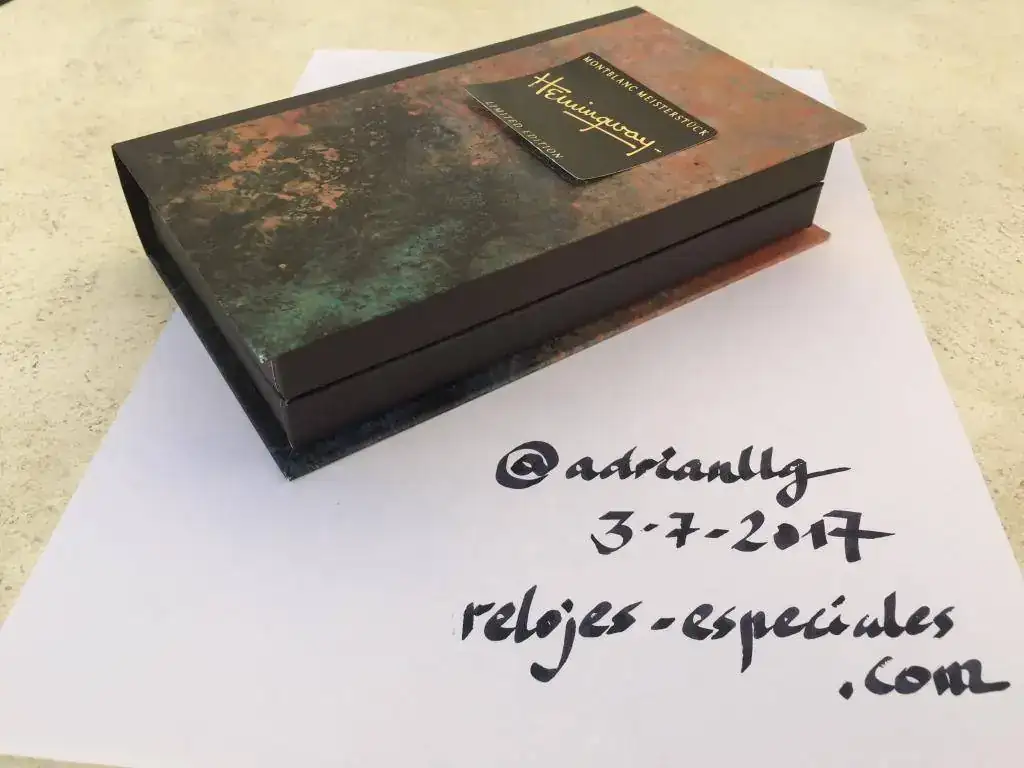 MONTBLANC MEISTERSTÜCK
Hemingway
LIMITED EDITION
@adrianllg
3-7-2017
relojes-especiales
.com